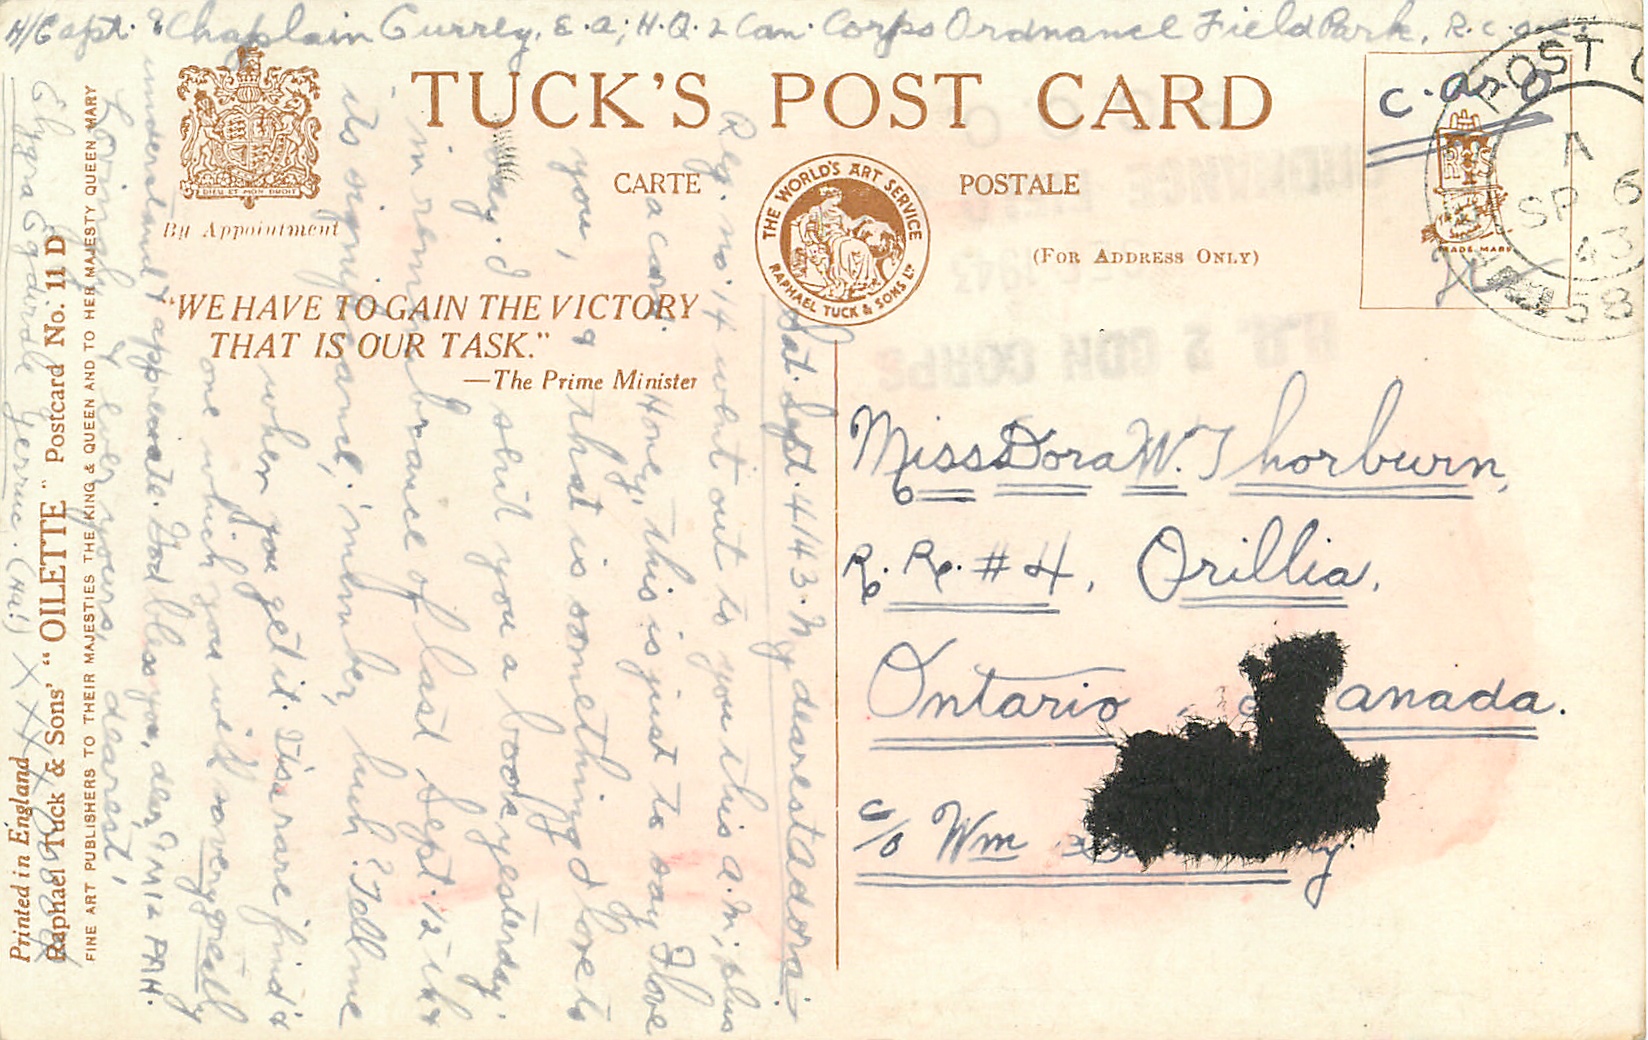 H/Capt. & Chaplain Gurrey, E.A; H.Q. 2 Can. Corps Ordnance Field Park, R.C.O.C.
TUCK'S POST CARD
CARTE POSTALE
THE WORLD'S ART SERVICE
RAPHAEL TUCK & SONS LTD
(FOR ADDRESS ONLY)
DIEU ET MON DROIT
By Appointment
"WE HAVE TO GAIN THE VICTORY
THAT IS OUR TASK."
—The Prime Minister
C.A.O.
POST
A
SP 6
43
58
TRADE MARK
H.Q. 2 CDN CORPS
Miss Dora W. Thorburn,
R. R. #4, Orillia,
Ontario, Canada.
c/o Wm
Sat. Sept. 4/43. My dearest adora:
Reg. no. 14 went out to you this a.m; plus
a card. Honey, this is just to say I love
you, & that is something I love to
say. I sent you a book yesterday,
in remembrance of last Sept. 12 -th &
its significance, 'member, huh? Tell me
when you get it. Tis a rare find &
one which you will so very greatly
understand & appreciate. God bless you, dear,
Lovingly & ever yours, dearest,
Printed in England
Raphael Tuck & Sons' "OILETTE" Postcard No. 11 D
FINE ART PUBLISHERS TO THEIR MAJESTIES THE KING & QUEEN AND TO HER MAJESTY QUEEN MARY